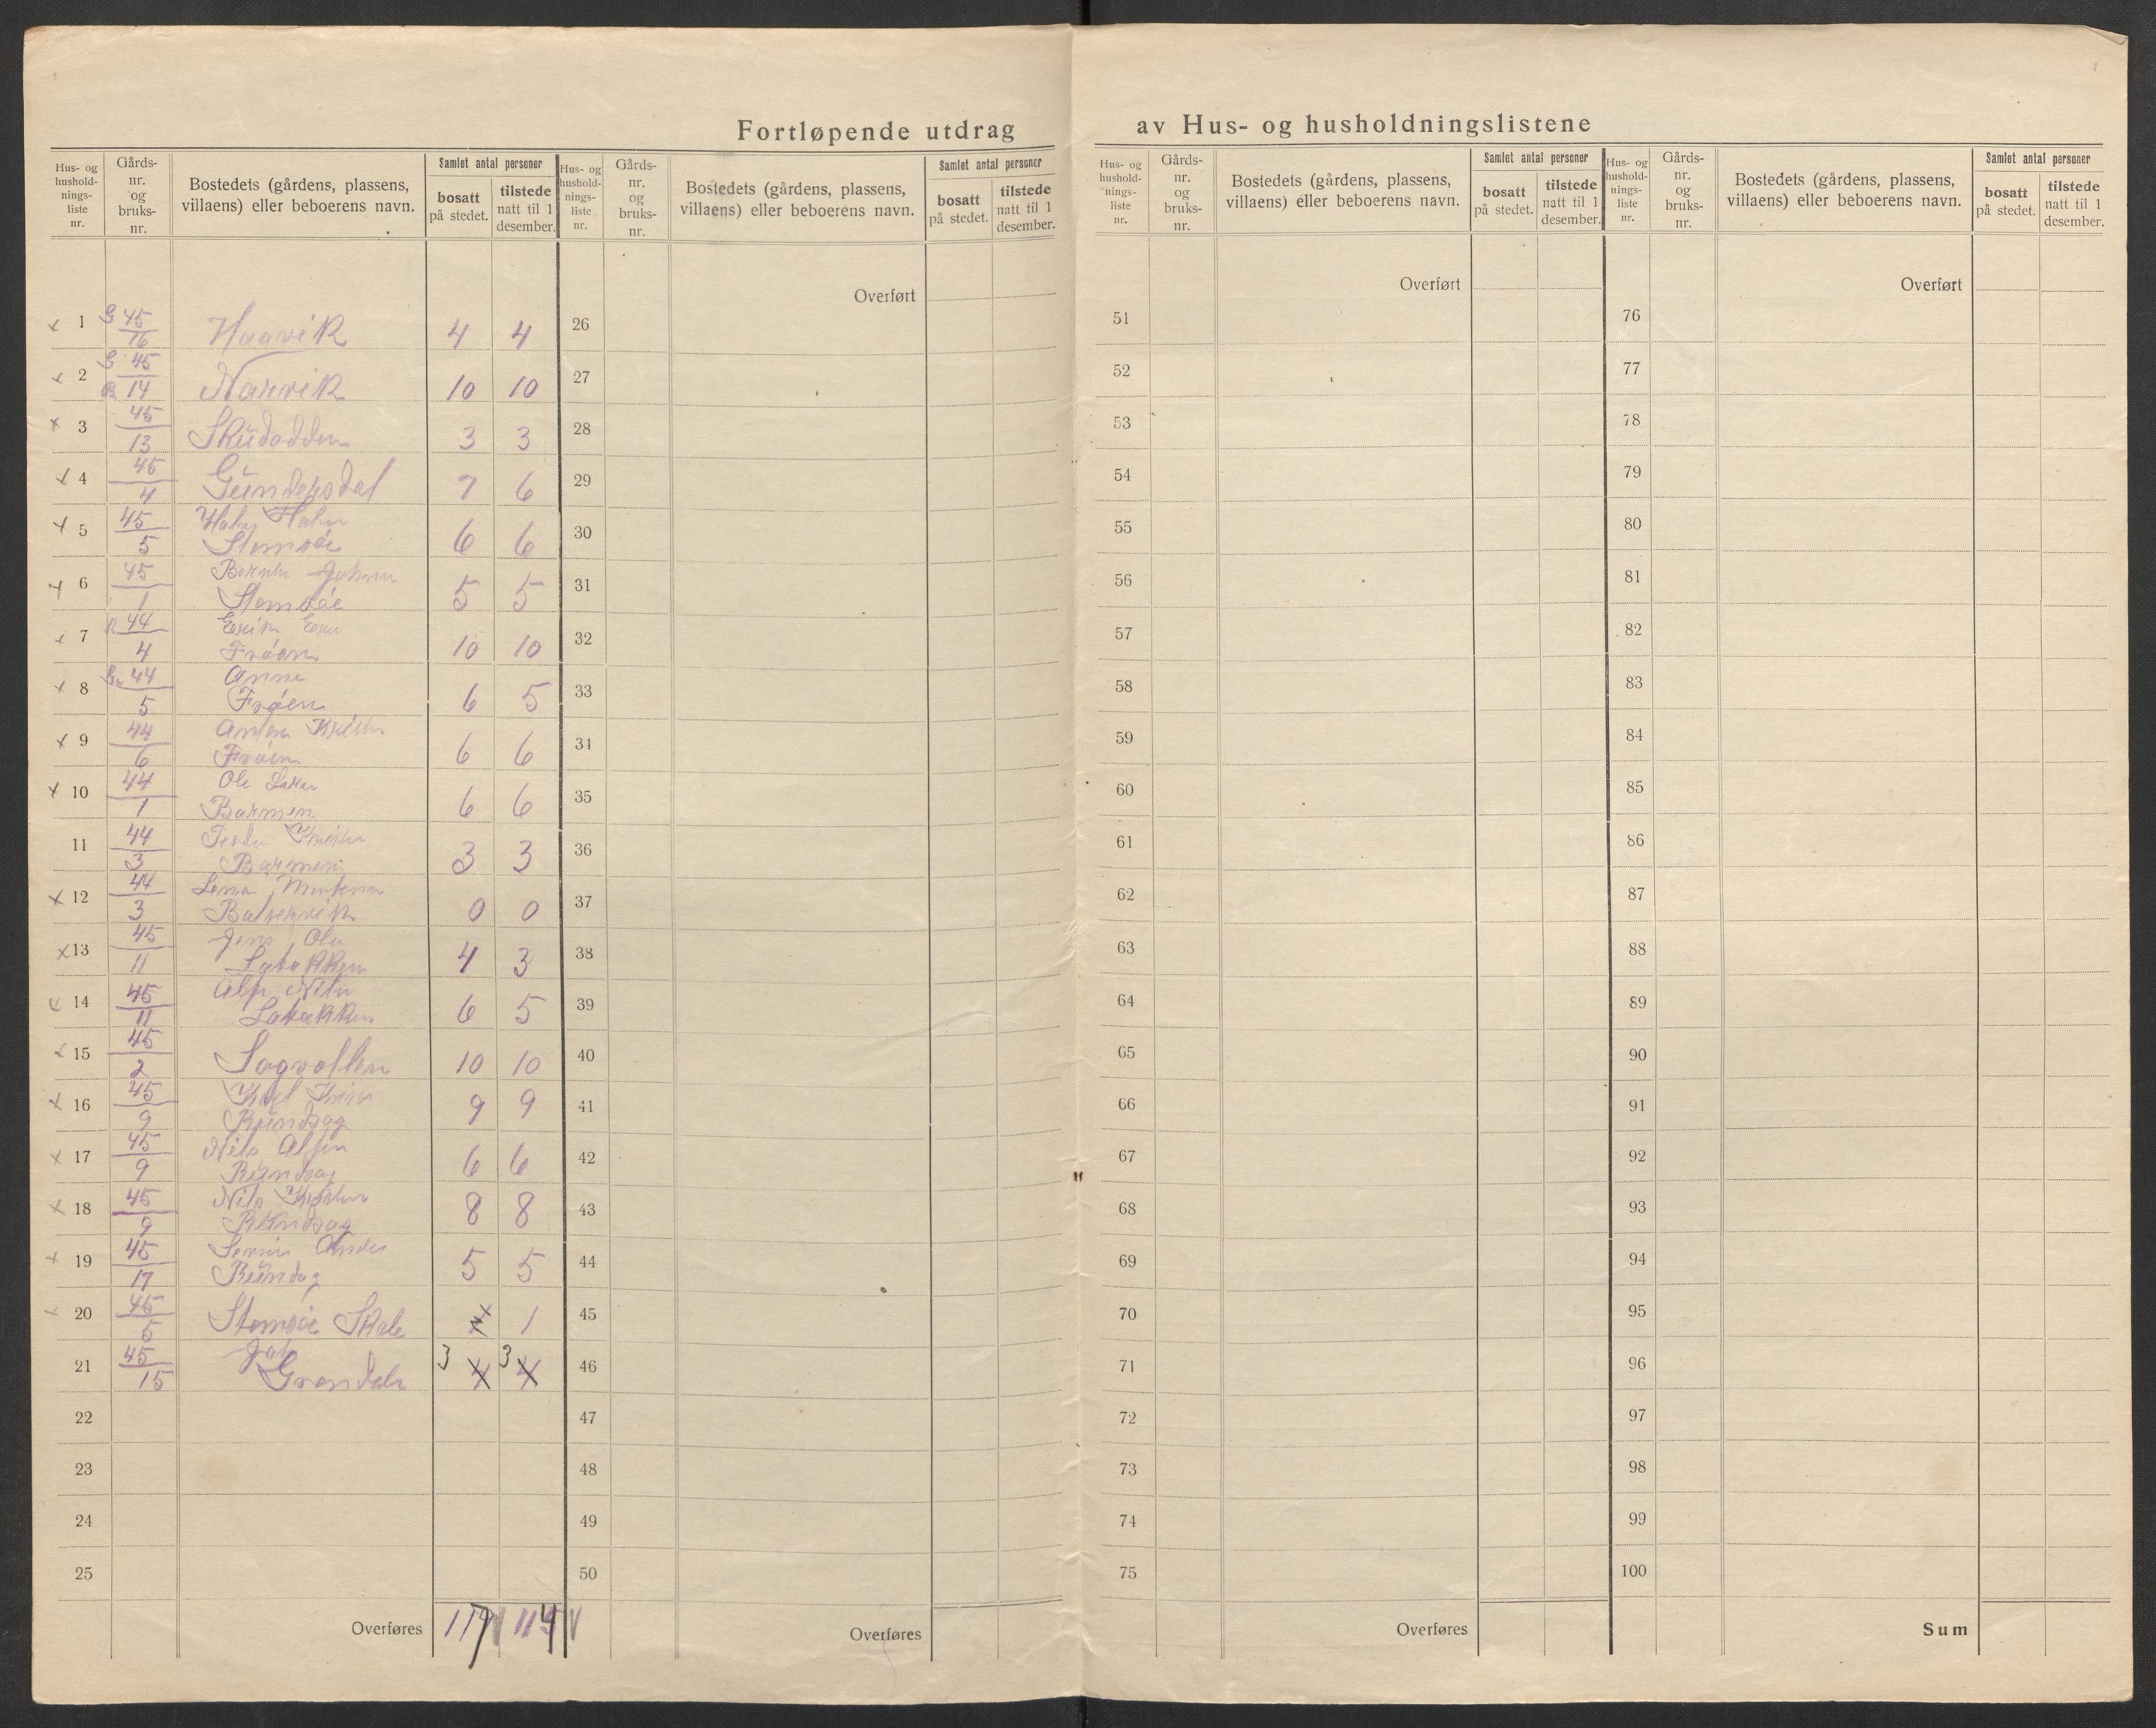 Fortløpende utdrag av Hus- og husholdningslistene
Hus- og hushold-nings-liste nr. | Gårds-nr. og bruks-nr. | Bostedets (gårdens, plassens, villaens) eller beboerens navn. | Samlet antal personer | bosatt på stedet. | tilstede natt til 1 desember.
Hus- og hushold-nings-liste nr. | Gårds-nr. og bruks-nr. | Bostedets (gårdens, plassens, villaens) eller beboerens navn. | Samlet antal personer | bosatt på stedet. | tilstede natt til 1 desember.
Hus- og hushold-nings-liste nr. | Gårds-nr. og bruks-nr. | Bostedets (gårdens, plassens, villaens) eller beboerens navn. | Samlet antal personer | bosatt på stedet. | tilstede natt til 1 desember.
Hus- og hushold-nings-liste nr. | Gårds-nr. og bruks-nr. | Bostedets (gårdens, plassens, villaens) eller beboerens navn. | Samlet antal personer | bosatt på stedet. | tilstede natt til 1 desember.
x 1 G 45/16 Haavik 4 4
x 2 G 45 B 14 Narvik 10 10
x 3 45/13 3 3
x 4 45/4 Gündersdal 7 6
x 5 45/5 6 6
x 6 45/1 5 5
x 7 44/4 Erik Frøen 10 10
x 8 44/5 Anne Frøen 6 5
x 9 44/6 Frøen 6 6
x 10 44/1 Ole Barmen 6 6
11 44/3 Barmen 3 3
x 12 44/3 0 0
x 13 45/11 Jens 4 3
x 14 45/11 6 5
x 15 45/2 Sagvollen 10 10
x 16 45/9 Ründsag 9 9
x 17 45/9 Nils Ründsag 6 6
x 18 45/9 Nils Ründsag 8 8
x 19 45/17 5 5
x 20 45/5 1
21 45/15 Grøndal 3 4 3 4
22
23
24
25
Overføres 117 114
Overført
26
27
28
29
30
31
32
33
34
35
36
37
38
39
40
41
42
43
44
45
46
47
48
49
50
Overføres
Overført
51
52
53
54
55
56
57
58
59
60
61
62
63
64
65
66
67
68
69
70
71
72
73
74
75
Overføres
Overført
76
77
78
79
80
81
82
83
84
85
86
87
88
89
90
91
92
93
94
95
96
97
98
99
100
Sum